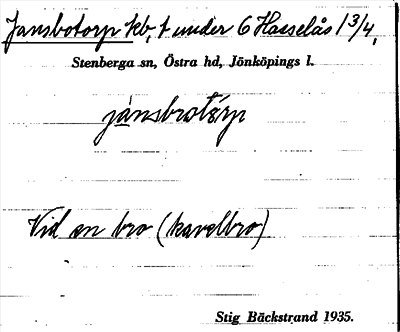 Jansbotorp kb, t under 6 Hasselås 1 3/4,
Stenberga sn, Östra hd, Jönköpings l.
jánsbrotórp
Vid en bro (kavelbro)
Stig Bäckstrand 1935.